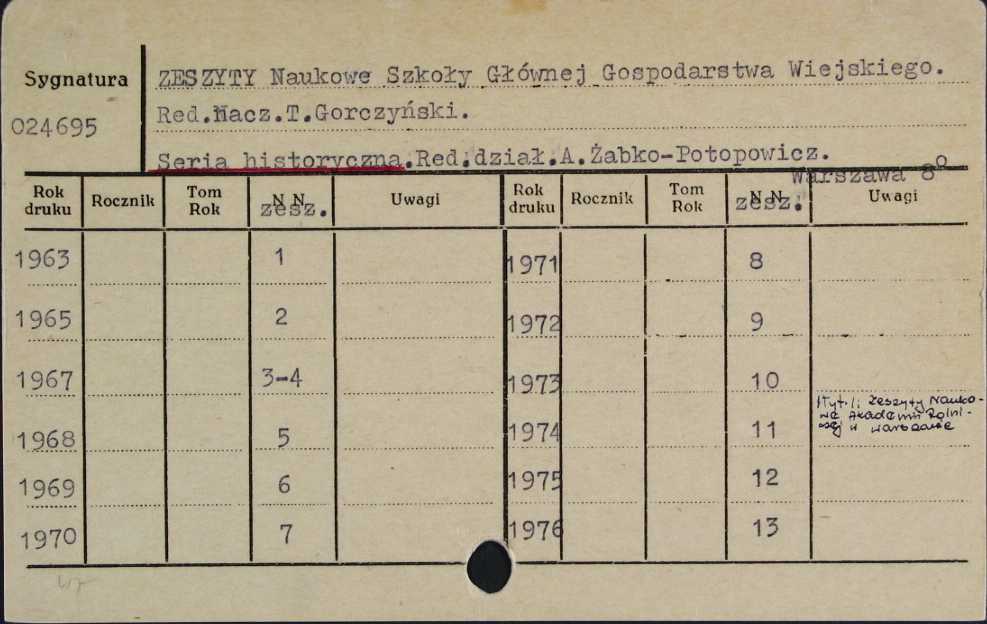 Sygnatura
024695
ZESZYTY Naukowe Szkoły Głównej Gospodarstwa Wiejskiego.
Red.Nacz.T.Gorczyński.
Seria historyczna.Red.dział.A.Żabko-Potopowicz.
Warszawa 8°
Rok druku Rocznik Tom Rok N N zesz. Uwagi Rok druku Rocznik Tom Rok N N zesz. Uwagi
1963 1 1971 8
1965 2 1972 9
1967 3-4 1973 10
1968 5 1974 11 Zeszyty Nauko-
we Akademii Rolni-
czej w Warszawie
1969 6 1975 12
1970 7 1976 13